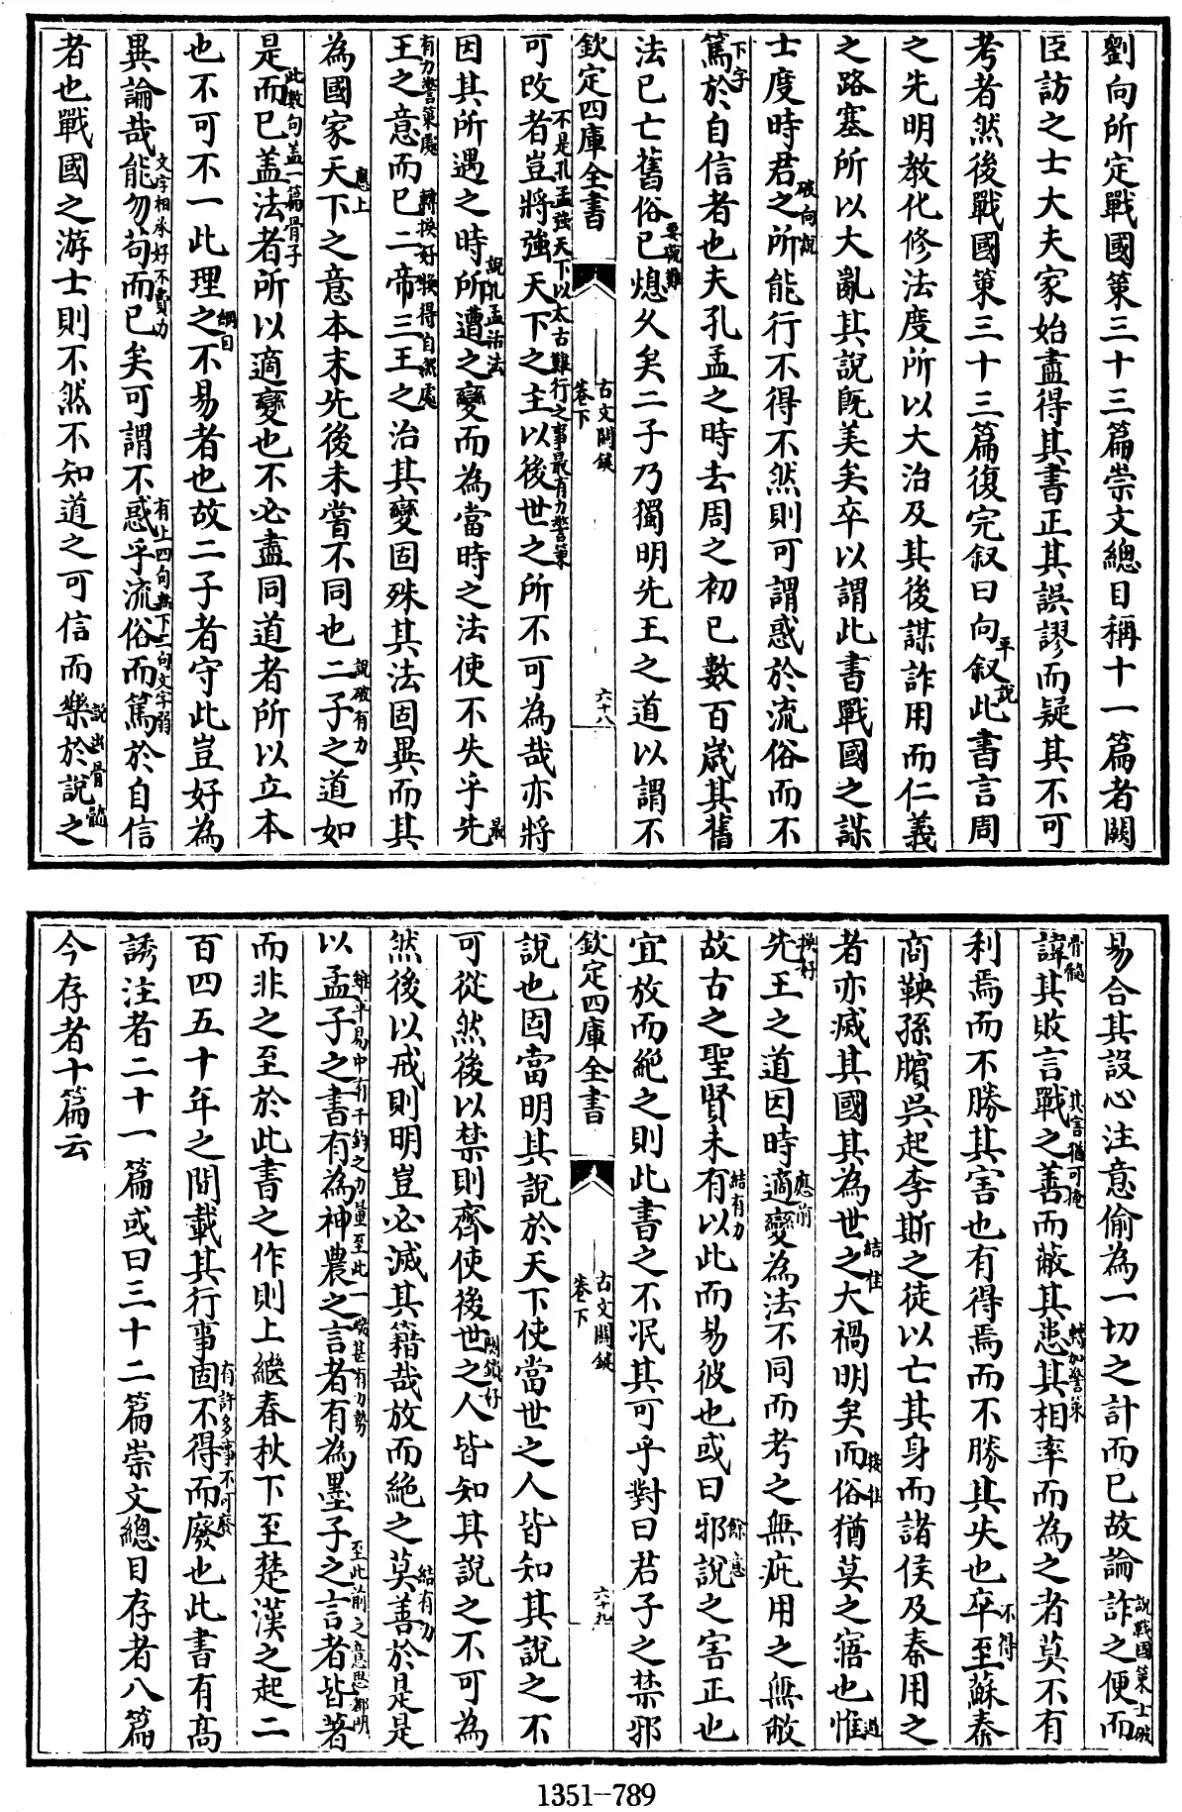 劉向所定戰國策三十三篇崇文總目稱十一篇者闕
臣訪之士大夫家始盡得其書正其誤謬而疑其不可
考者然後戰國策三十三篇復完叙曰向叙此書言周
平說
之先明教化修法度所以大治及其後謀詐用而仁義
之路塞所以大亂其說既美矣卒以謂此書戰國之謀
士度時君之所能行不得不然則可謂惑於流俗而不
破向說
篤於自信者也夫孔孟之時去周之初已數百歲其舊
下字
法已亡舊俗已熄久矣二子乃獨明先王之道以謂不
要說難
欽定四庫全書
古文關鍵
卷下
六十八
可改者豈將強天下之主以後世之所不可為哉亦將
不是孔孟強天下以太古難行之事最有力警策
因其所遇之時所遭之變而為當時之法使不失乎先
說孔孟活法
最
王之意而已二帝三王之治其變固殊其法固異而其
有力警策處
轉換好換得自然處
為國家天下之意本末先後未嘗不同也二子之道如
應上
說破有力
是而已盖法者所以適變也不必盡同道者所以立本
此數句盖一篇骨子
也不可不一此理之不易者也故二子者守此豈好為
綱目
異論哉能勿苟而已矣可謂不惑乎流俗而篤於自信
文字相承好不費力
有上四句無下二句文字弱
者也戰國之游士則不然不知道之可信而樂於說之
說出骨髓
易合其設心注意偷為一切之計而已故論詐之便而
說戰國策士破
諱其敗言戰之善而蔽其患其相率而為之者莫不有
骨髓
其言猶可掩
轉加警策
利焉而不勝其害也有得焉而不勝其失也卒至蘇秦
不得
商鞅孫臏吳起李斯之徒以亡其身而諸侯及秦用之
者亦滅其國其為世之大禍明矣而俗猶莫之寤也惟
結住
接佳
過
先王之道因時適變為法不同而考之無疵用之無敝
換好
應前
故古之聖賢未有以此而易彼也或曰邪說之害正也
結有力
餘意
宜放而絶之則此書之不泯其可乎對曰君子之禁邪
欽定四庫全書
古文關鍵
卷下
六十九
說也固當明其說於天下使當世之人皆知其說之不
可從然後以禁則齊使後世之人皆知其說之不可為
關鎖好
然後以戒則明豈必滅其籍哉放而絶之莫善於是是
結有力
以孟子之書有為神農之言者有為墨子之言者皆著
雖平易中有千鈞之力量至此一發甚有力勢
至此前之意思都明
而非之至於此書之作則上繼春秋下至楚漢之起二
百四五十年之間載其行事固不得而廢也此書有高
有許多事不可廢
誘注者二十一篇或曰三十二篇崇文總目存者八篇
今存者十篇云
1351-789